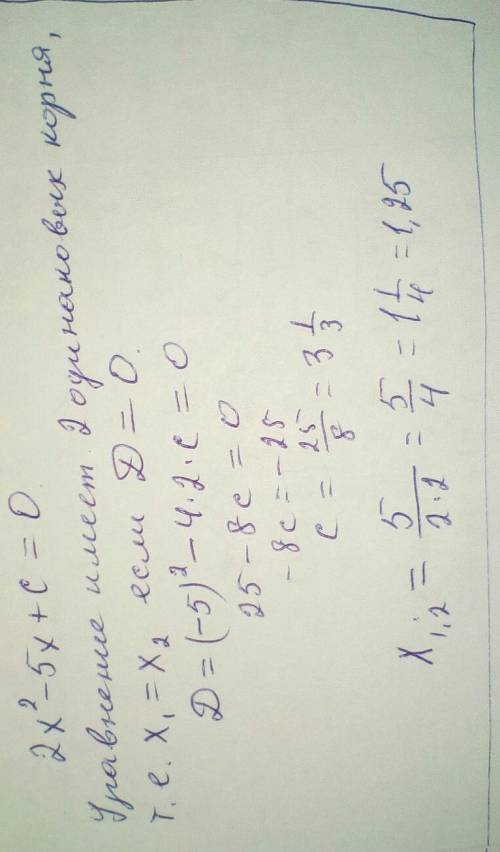 2x² - 5x + c = 0
Уравнение имеет 2 одинаковых корня,
т.е. x₁ = x₂ если D = 0.
D = (-5)² - 4·2·c = 0
25 - 8c = 0
-8c = -25
c = 25/8 = 3 1/3
x₁,₂ = 5/(2·2) = 5/4 = 1 1/4 = 1,25